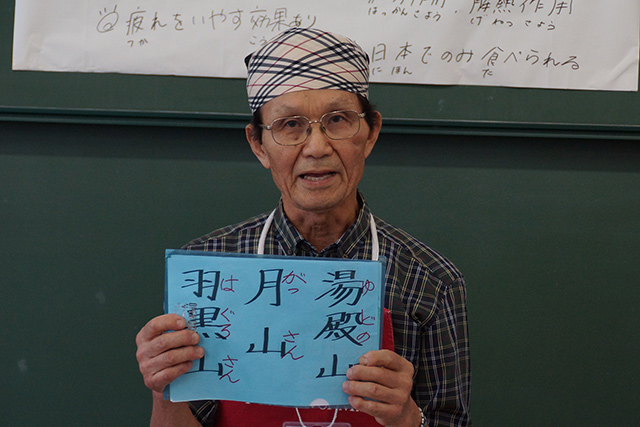 疲れをいやす効果あり
つか
こうか
解熱作用
はっかんさよう、げねつさよう
日本でのみ食べられる
にほん
た
湯殿山
ゆどの
月山
がっさん
羽黒山
はぐろさん